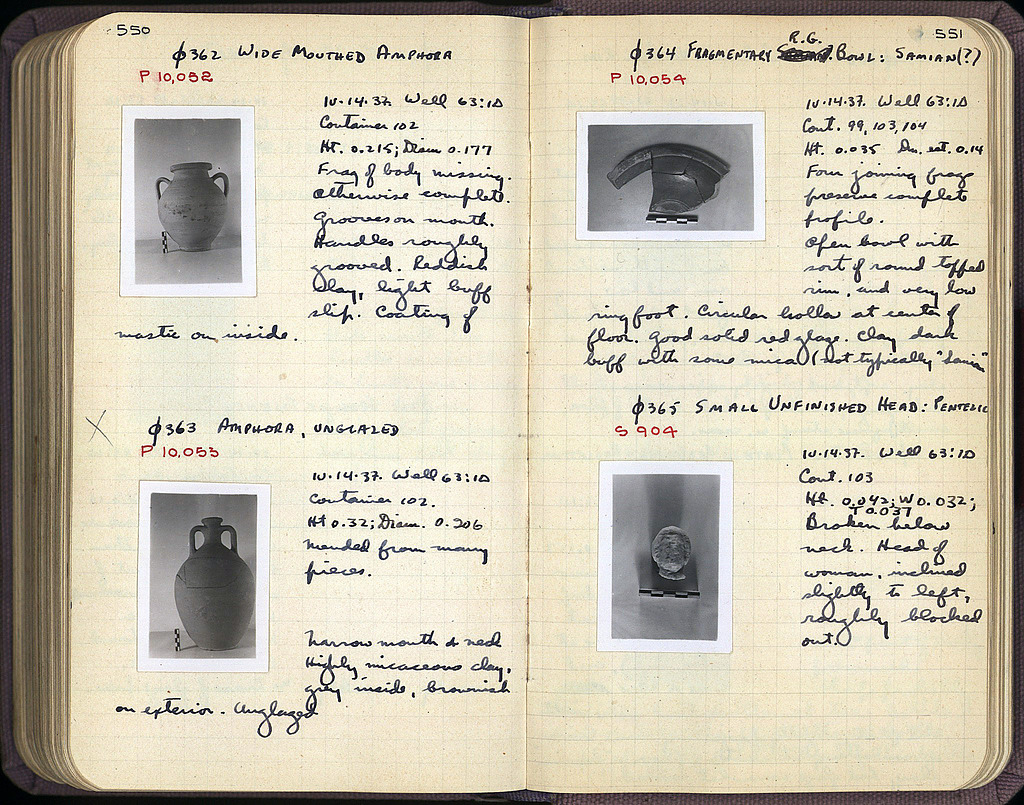 550
φ362 WIDE MOUTHED AMPHORA
P 10,052
IV·14·37. Well 63:1Δ
Container 102
Ht. 0.215; Diam 0.177
Frag of body missing.
Otherwise complete.
Grooves on mouth.
Handles roughly
grooved. Reddish
clay, light buff
slip. Coating of
mastic on inside.
X
φ363 AMPHORA, UNGLAZED
P 10,053
IV·14·37. Well 63:1Δ
Container 102.
Ht 0.32; Diam. 0.206
Mended from many
pieces.
Narrow mouth & neck
Highly micaceous clay,
grey inside, brownish
on exterior. Unglazed
551
R.G.
φ364 FRAGMENTARY BOWL: SAMIAN(?)
P 10,054
IV·14·37. Well 63:1Δ
Cont. 99, 103, 104
Ht. 0.035 Dm. est. 0.14
Four joining frags
preserve complete
profile.
Open bowl with
sort of round topped
rim, and very low
ring foot. Circular hollow at center of
floor. Good solid red glaze. Clay dark
buff with some mica (not typically "Samian"
φ365 SMALL UNFINISHED HEAD: PENTELIC
S 904
IV·14·37. Well 63:1Δ
Cont. 103
Ht. 0.042; W 0.032;
T 0.037
Broken below
neck. Head of
woman, inclined
slightly to left,
roughly blocked
out.